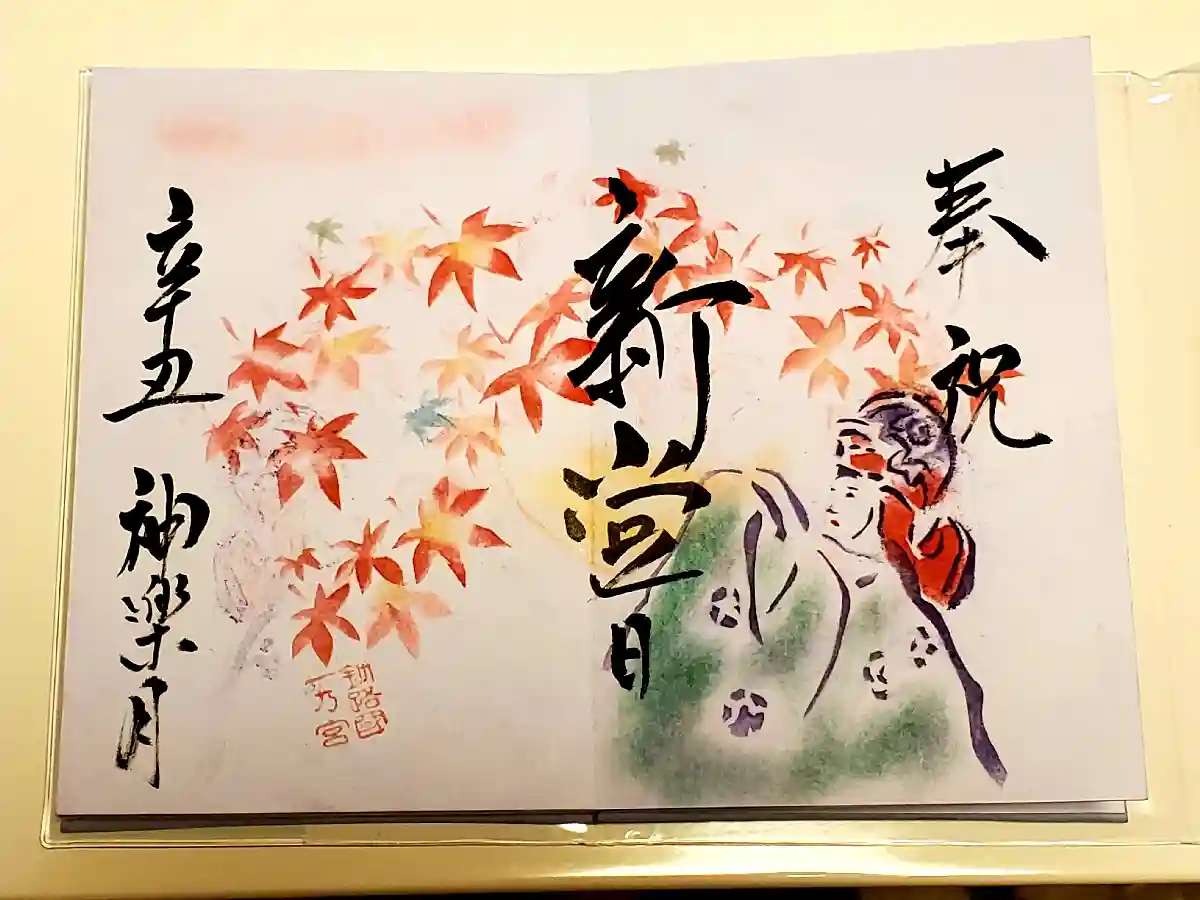 奉祝
新嘗
辛丑 神楽月
釧路國
一乃宮